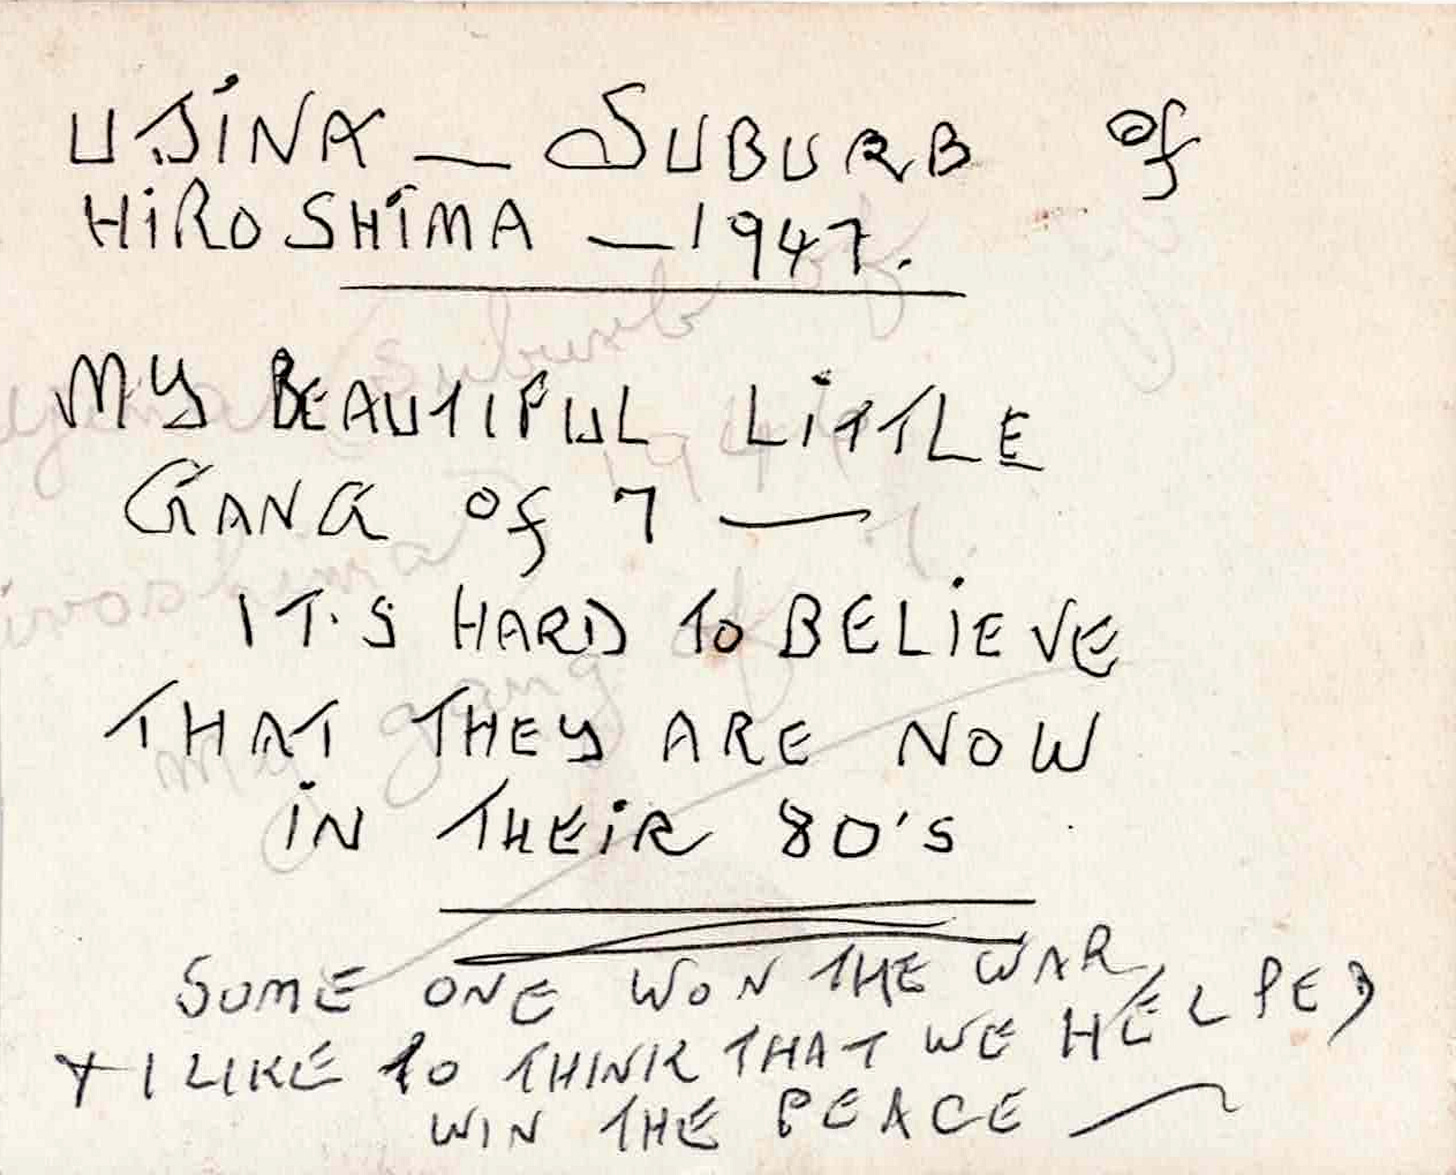 UJINA — SUBURB of
HIROSHIMA — 1947.
MY BEAUTIFUL LITTLE
GANG of 7 —
IT.S HARD TO BELIEVE
THAT THEY ARE NOW
IN THEIR 80'S
SOME ONE WON THE WAR
+ I LIKE TO THINK THAT WE HELPED
WIN THE PEACE —
Suburb of
1947
My gang of